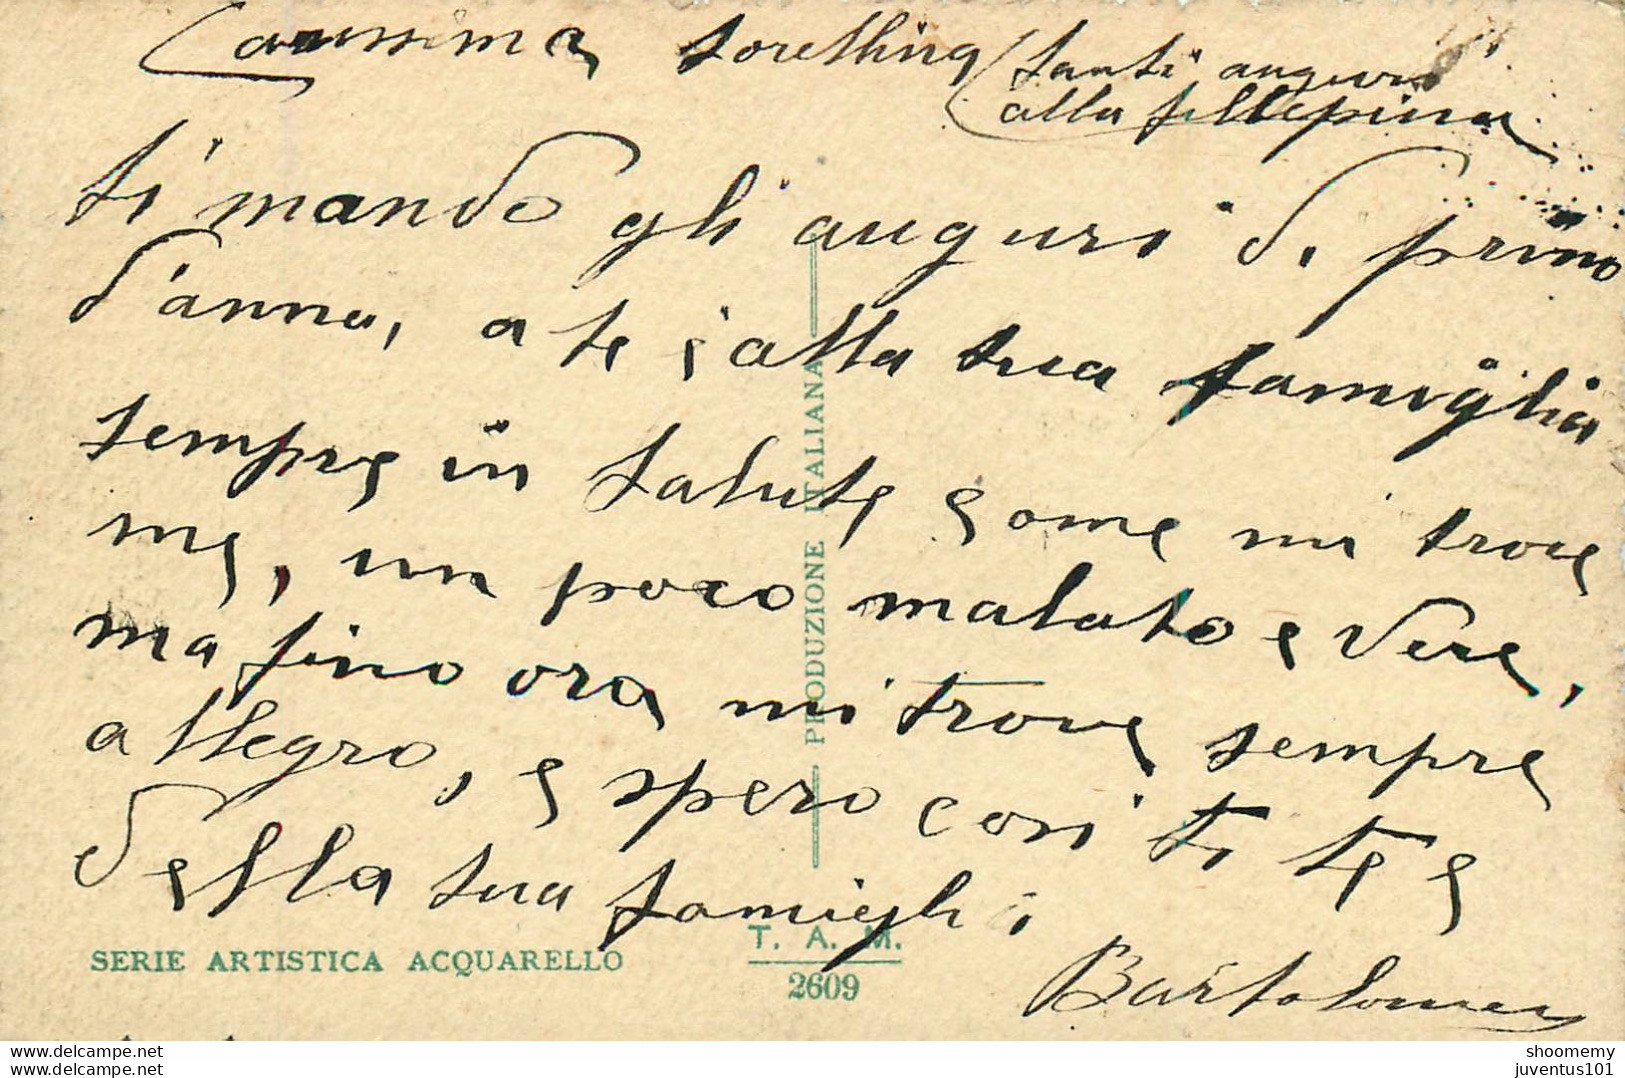 Carissima Sorellina (tanti auguri
alla fillepina
ti mando gli auguri di primo
d'anno, a te e alla tua famiglia
sempre in salute come mi trove
me, un poco malato e vere,
ma fino ora mi trove sempre
allegro, e spero cosi ti te e
della tua famigli
Bartolomeu
PRODUZIONE ITALIANA
SERIE ARTISTICA ACQUARELLO
T. A. M.
2609
shoomemy
delcampe.net
juventus101